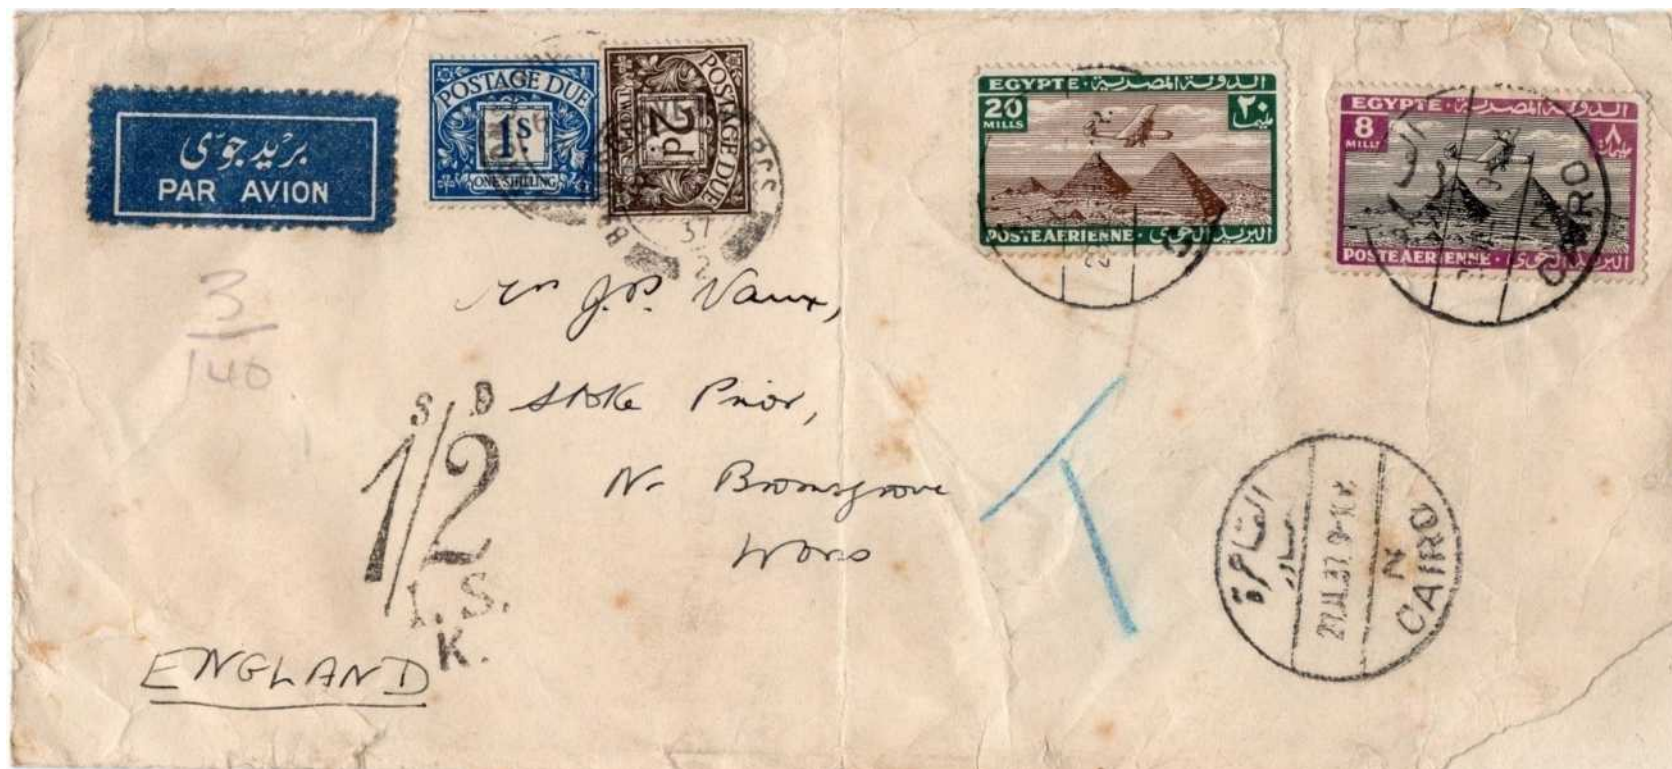 بريد جوى
PAR AVION
POSTAGE DUE
1S.
ONE SHILLING
POSTAGE DUE
2d.
37
EGYPTE · الدولة المصرية
20 ٢٠
MILLS مليما
POSTE AERIENNE · البريد الجوى
EGYPTE · الدولة المصرية
8 ٨
MILLS
POSTE AERIENNE · البريد الجوى
CAIRO
3
140
Mrs J.P. Vaux,
Stoke Prior,
Nr Bromsgrove
Worcs
S D
1/2
I.S.
K.
T
القاهرة
CAIRO
N
ENGLAND